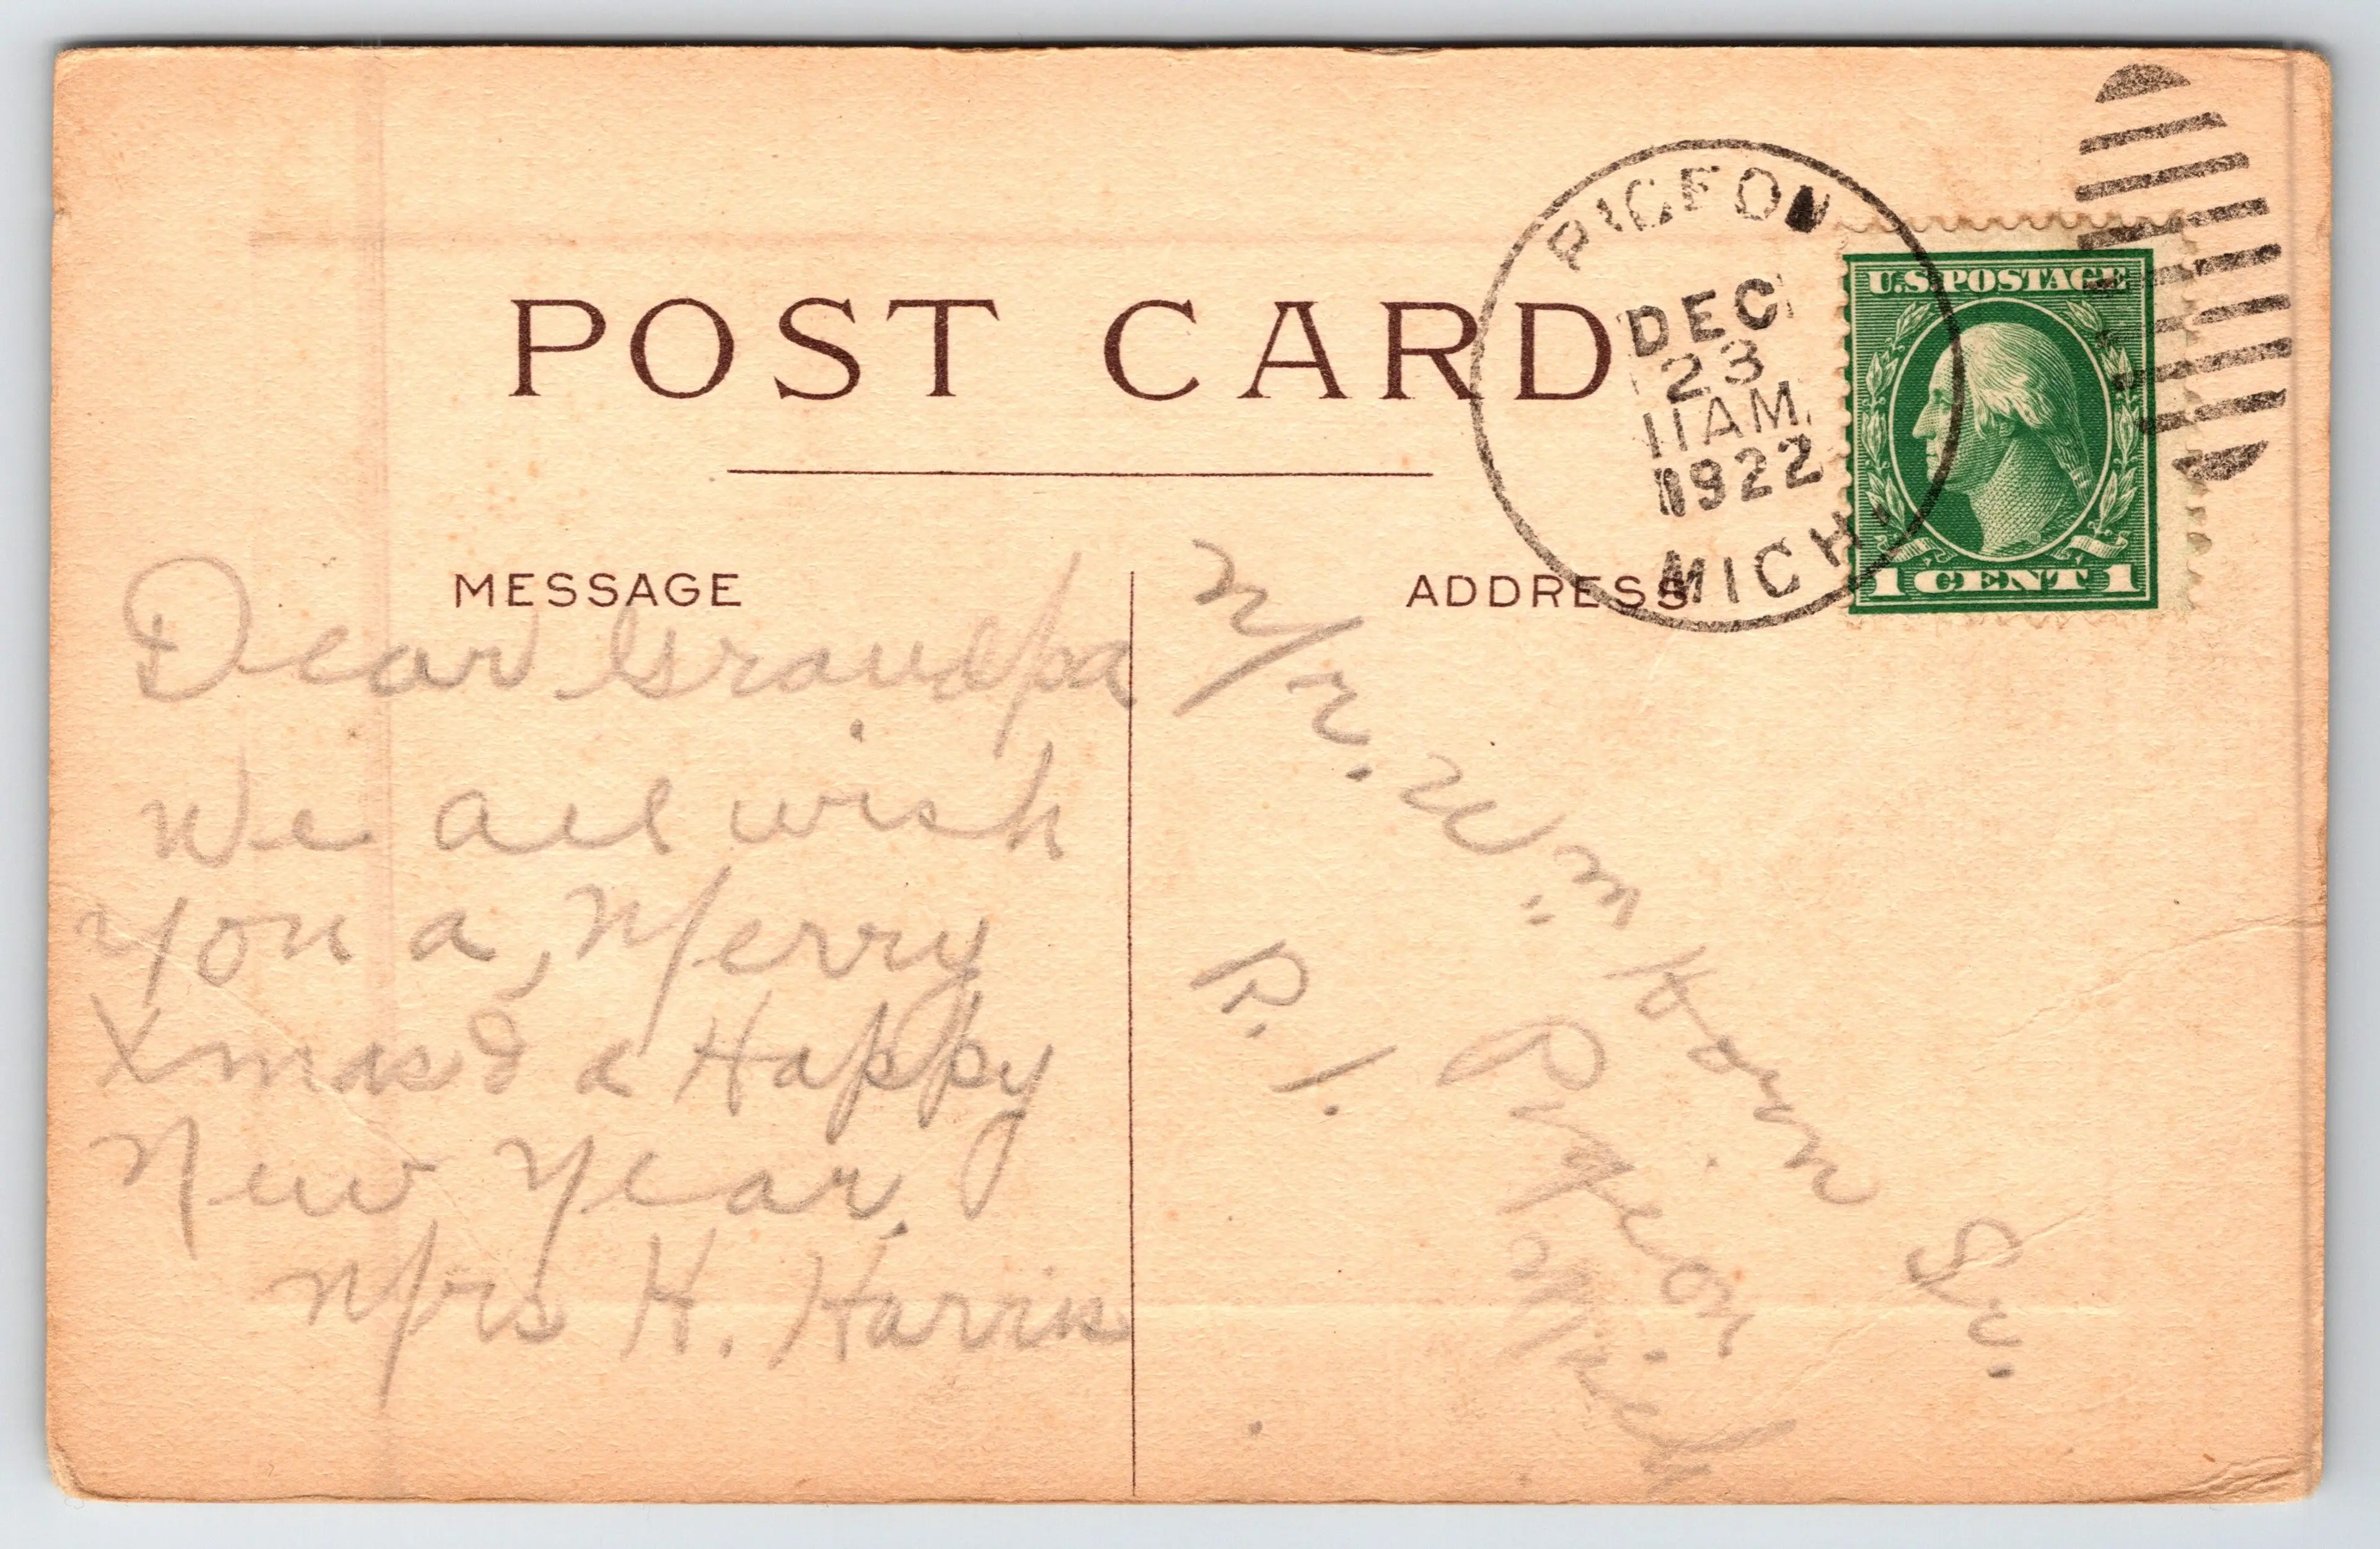 POST CARD
PIGEON
DEC
23
11 AM
1922
MICH.
U.S. POSTAGE
1 CENT 1
MESSAGE
Dear Grandpa
We all wish
you a, Merry
Xmas & a Happy
New Year.
Mrs H. Harris
ADDRESS
Mr. Wm Horn Sr.
Pigeon
Mich
R. 1.